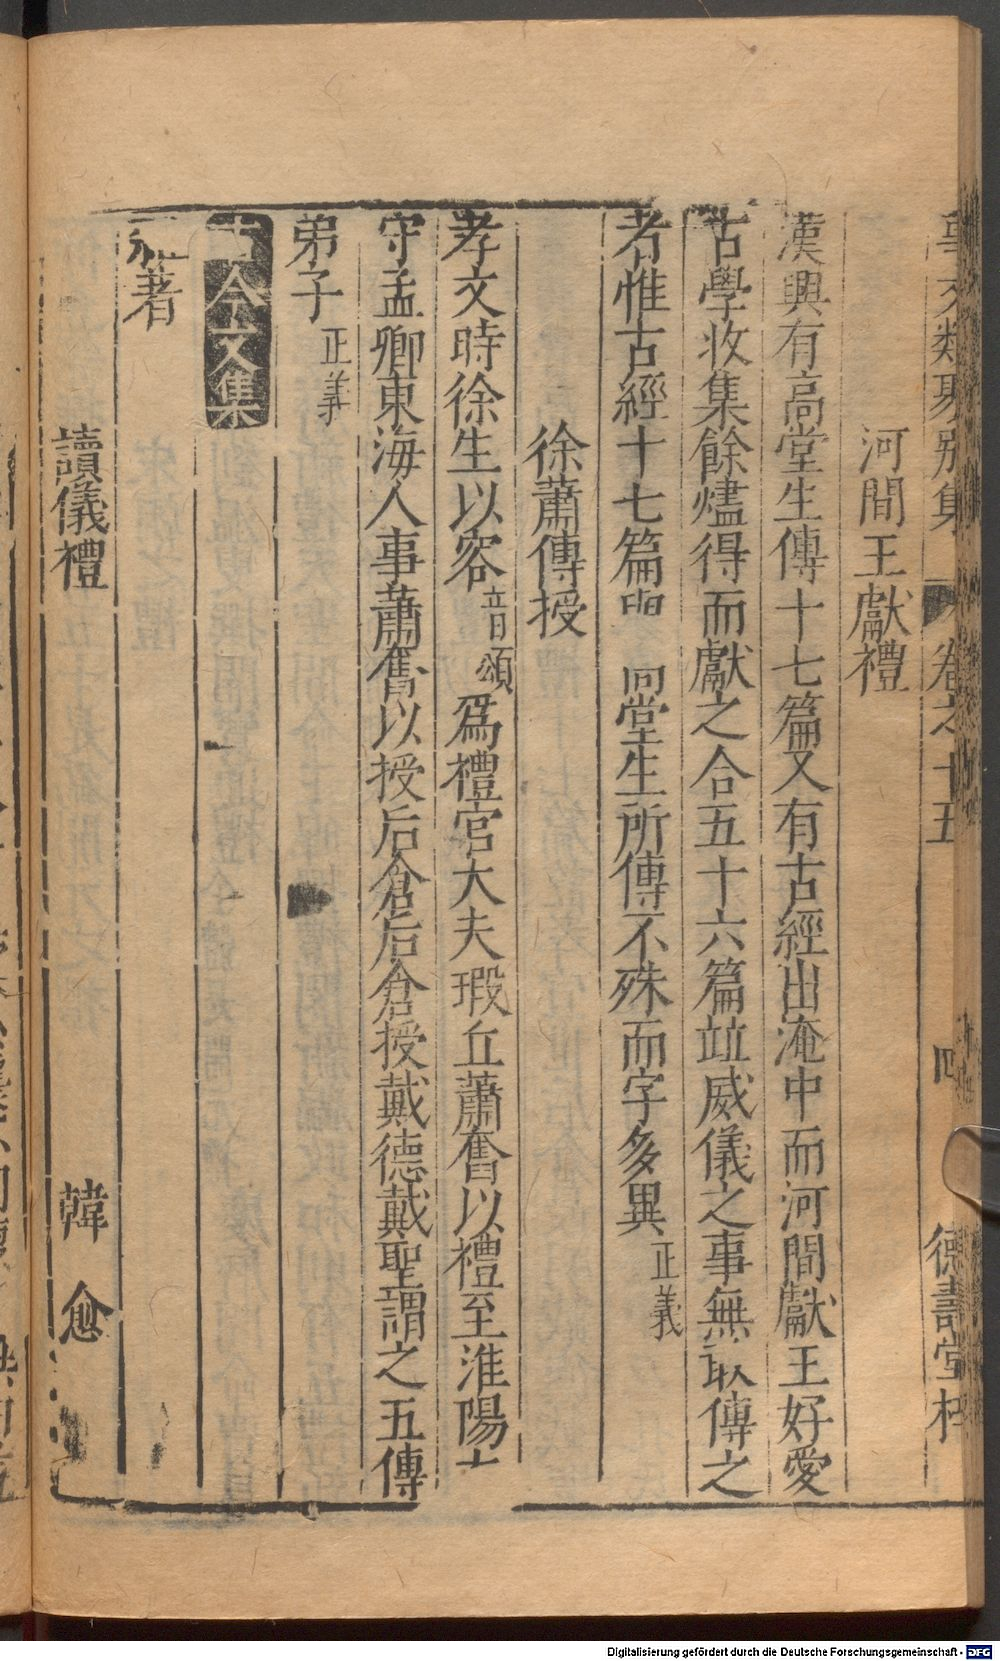 事文類聚別集 卷之十五 四 德壽堂梓
河間王獻禮
漢興有高堂生傳十七篇又有古經出淹中而河間獻王好愛
古學收集餘燼得而獻之合五十六篇竝威儀之事無敢傳之
者惟古經十七篇與高堂生所傳不殊而字多異正義
徐蕭傳授
孝文時徐生以容音頌爲禮官大夫瑕丘蕭奮以禮至淮陽太
守孟卿東海人事蕭奮以授后倉后倉授戴德戴聖謂之五傳
弟子正義
古今文集
雜著
讀儀禮 韓愈
Digitalisierung gefördert durch die Deutsche Forschungsgemeinschaft - DFG